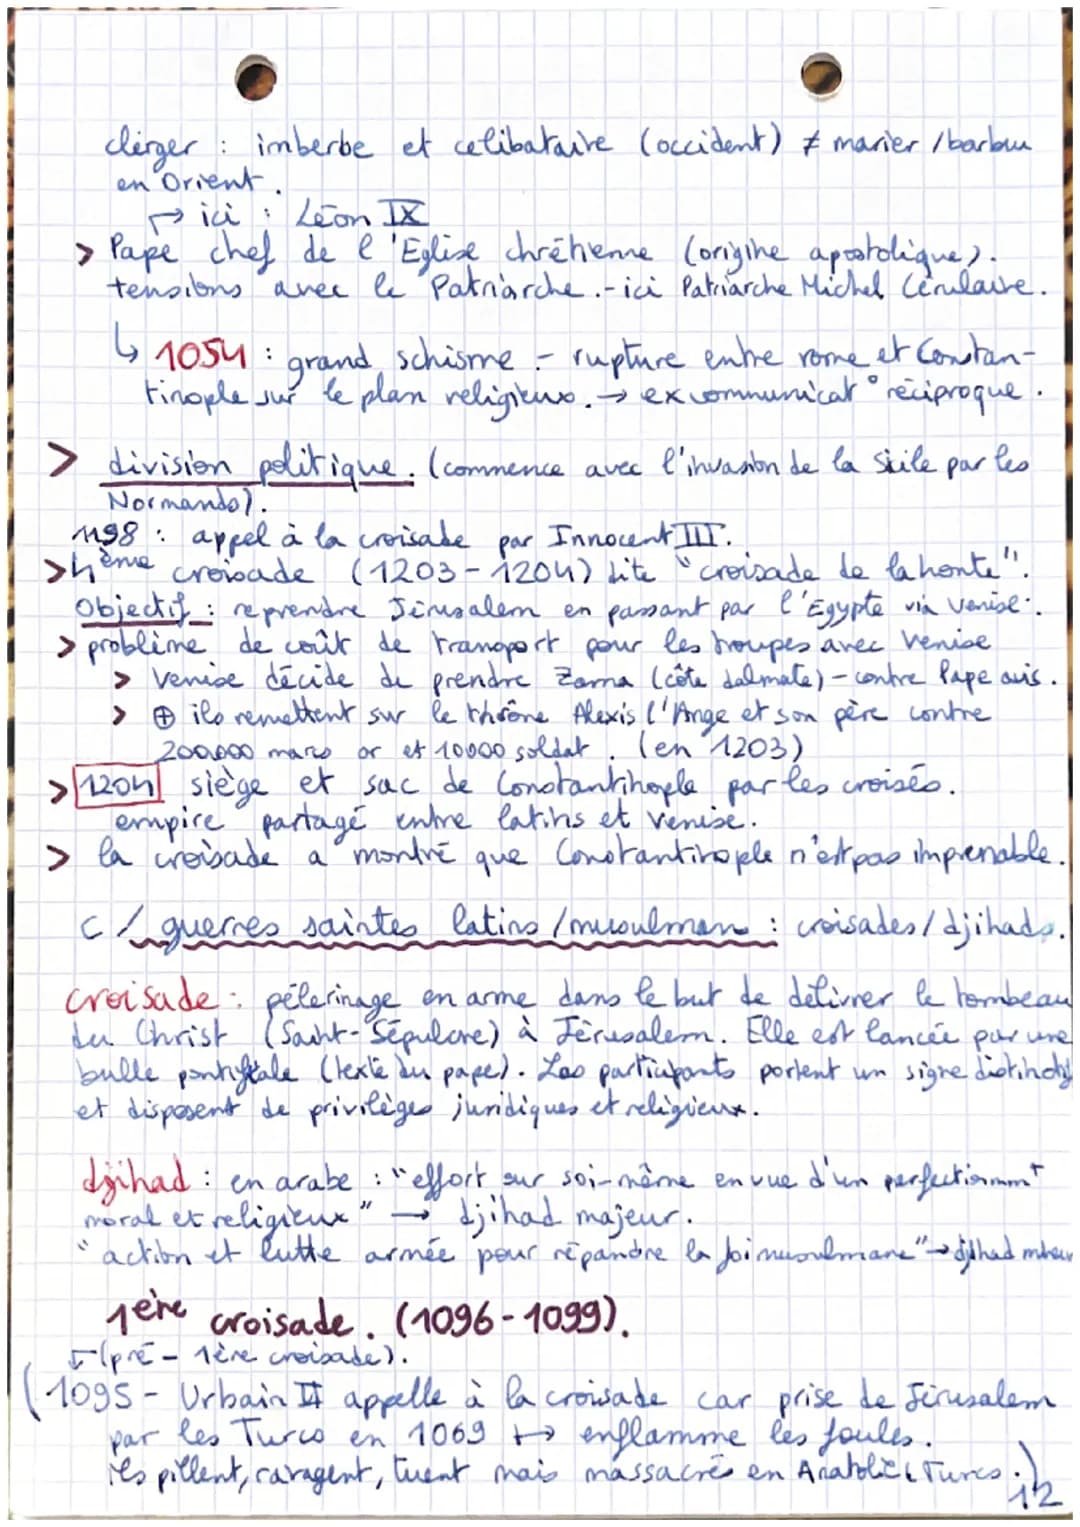 clerger : imberbe et celibataire (occident) ≠ marier / barbu
en Orient.
↱ ici : Léon IX
> Pape chef de l'Eglise chrétienne (origine apostolique).
tensions avec le Patriarche. - ici Patriarche Michel Cérulaire.
↳ 1054 : grand schisme - rupture entre rome et Constan-
tinople sur le plan religieux. → excommunicat° réciproque.
> division politique. (commence avec l'invasion de la Sicile par les
Normands).
1198 : appel à la croisade par Innocent III.
> 4ème croisade (1203-1204) dite "croisade de la honte".
Objectif : reprendre Jérusalem en passant par l'Egypte via Venise.
> problème de coût de transport pour les troupes avec Venise
> Venise décide de prendre Zarna (côte dalmate) - contre Pape avis.
> ⊕ ils remettent sur le thrône Alexis l'Ange et son père contre
200000 marcs or et 10000 soldat. (en 1203)
> 1204 siège et sac de Constantinople par les croisés.
empire partagé entre latins et Venise.
> la croisade a montré que Constantinople n'est pas imprenable.
C / guerres saintes latins / musulman : croisades / djihads.
croisade : pélerinage en arme dans le but de délivrer le tombeau
du Christ (Saint-Sépulcre) à Jérusalem. Elle est lancée par une
bulle pontifiale (texte du pape). Les participants portent un signe distinctif
et disposent de privilèges juridiques et religieux.
djihad : en arabe : "effort sur soi-même en vue d'un perfectionmt
moral et religieux" → djihad majeur.
"action et lutte armée pour répandre la foi musulmane" → djihad mineur
1ère croisade. (1096-1099).
↓ (pré - 1ère croisade).
(1095 - Urbain II appelle à la croisade car prise de Jérusalem
par les Turcs en 1069 ↦ enflamme les foules.
ils pillent, ravagent, tuent mais massacrés en Anatolie (Turcs.)
12